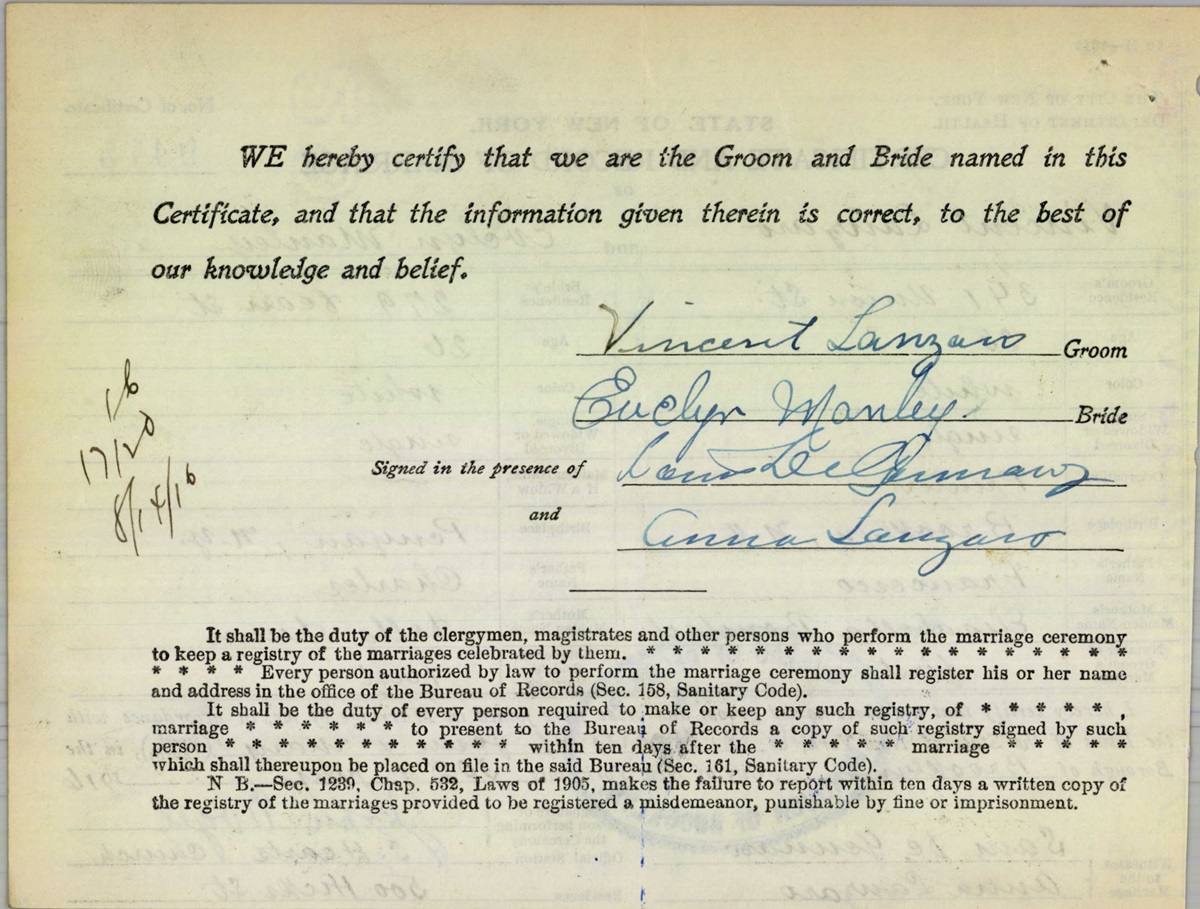 WE hereby certify that we are the Groom and Bride named in this
Certificate, and that the information given therein is correct, to the best of
our knowledge and belief.
Vincent Lanzaro Groom
Evelyn Manley. Bride
Signed in the presence of Louis De Gennaro
and
Anna Lanzaro
16
17/20
8/14/16
It shall be the duty of the clergymen, magistrates and other persons who perform the marriage ceremony
to keep a registry of the marriages celebrated by them. * * * * * * * * * * * * * * * * * *
* * * * Every person authorized by law to perform the marriage ceremony shall register his or her name
and address in the office of the Bureau of Records (Sec. 158, Sanitary Code).
It shall be the duty of every person required to make or keep any such registry, of * * * * * ,
marriage * * * * * * to present to the Bureau of Records a copy of such registry signed by such
person * * * * * * * * * * * within ten days after the * * * * * marriage * * * * *
which shall thereupon be placed on file in the said Bureau (Sec. 161, Sanitary Code).
N B.—Sec. 1239, Chap. 532, Laws of 1905, makes the failure to report within ten days a written copy of
the registry of the marriages provided to be registered a misdemeanor, punishable by fine or imprisonment.